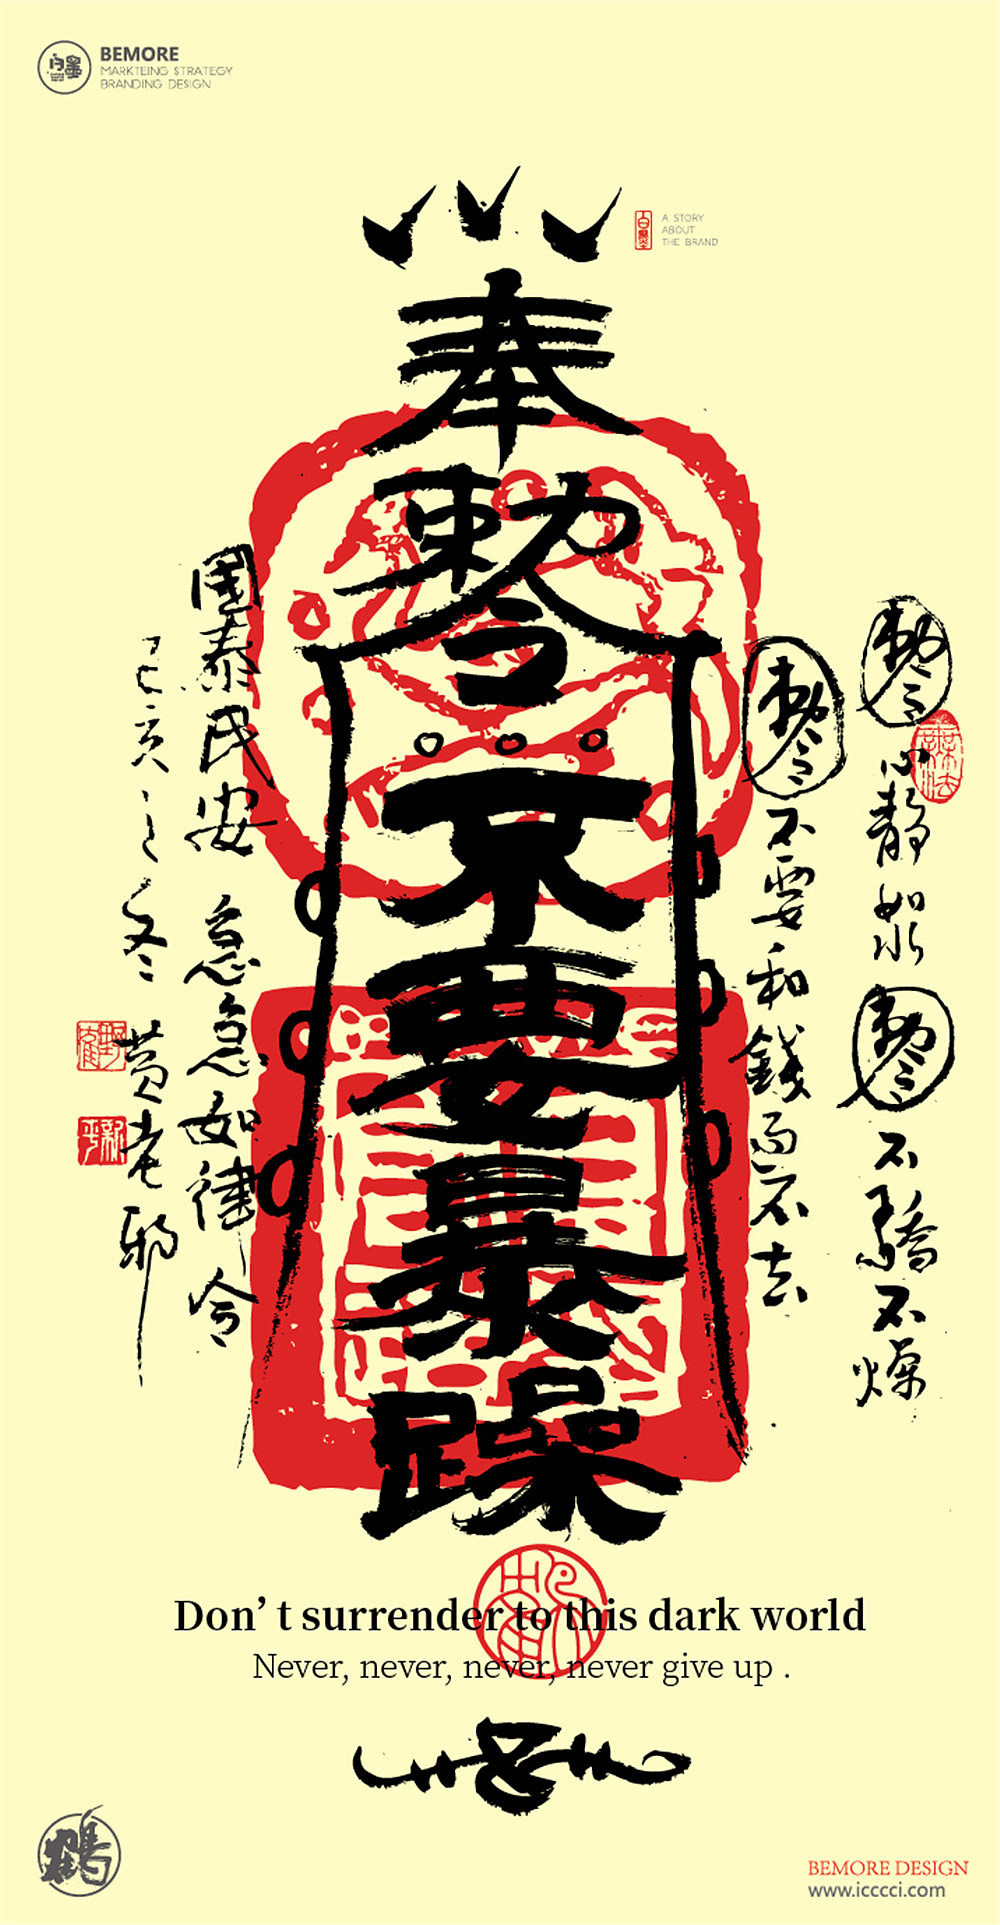 BEMORE
MARKTEING STRATEGY
BRANDING DESIGN
A STORY
ABOUT
THE BRAND
奉
敕
令
不
要
暴
躁
敕令 心静如水 敕令 不驕不燥
敕令 不要和錢過不去
國泰民安 急急如律令
己亥之冬 黄老邪
Don’t surrender to this dark world
Never, never, never, never give up .
鶴
BEMORE DESIGN
www.icccci.com